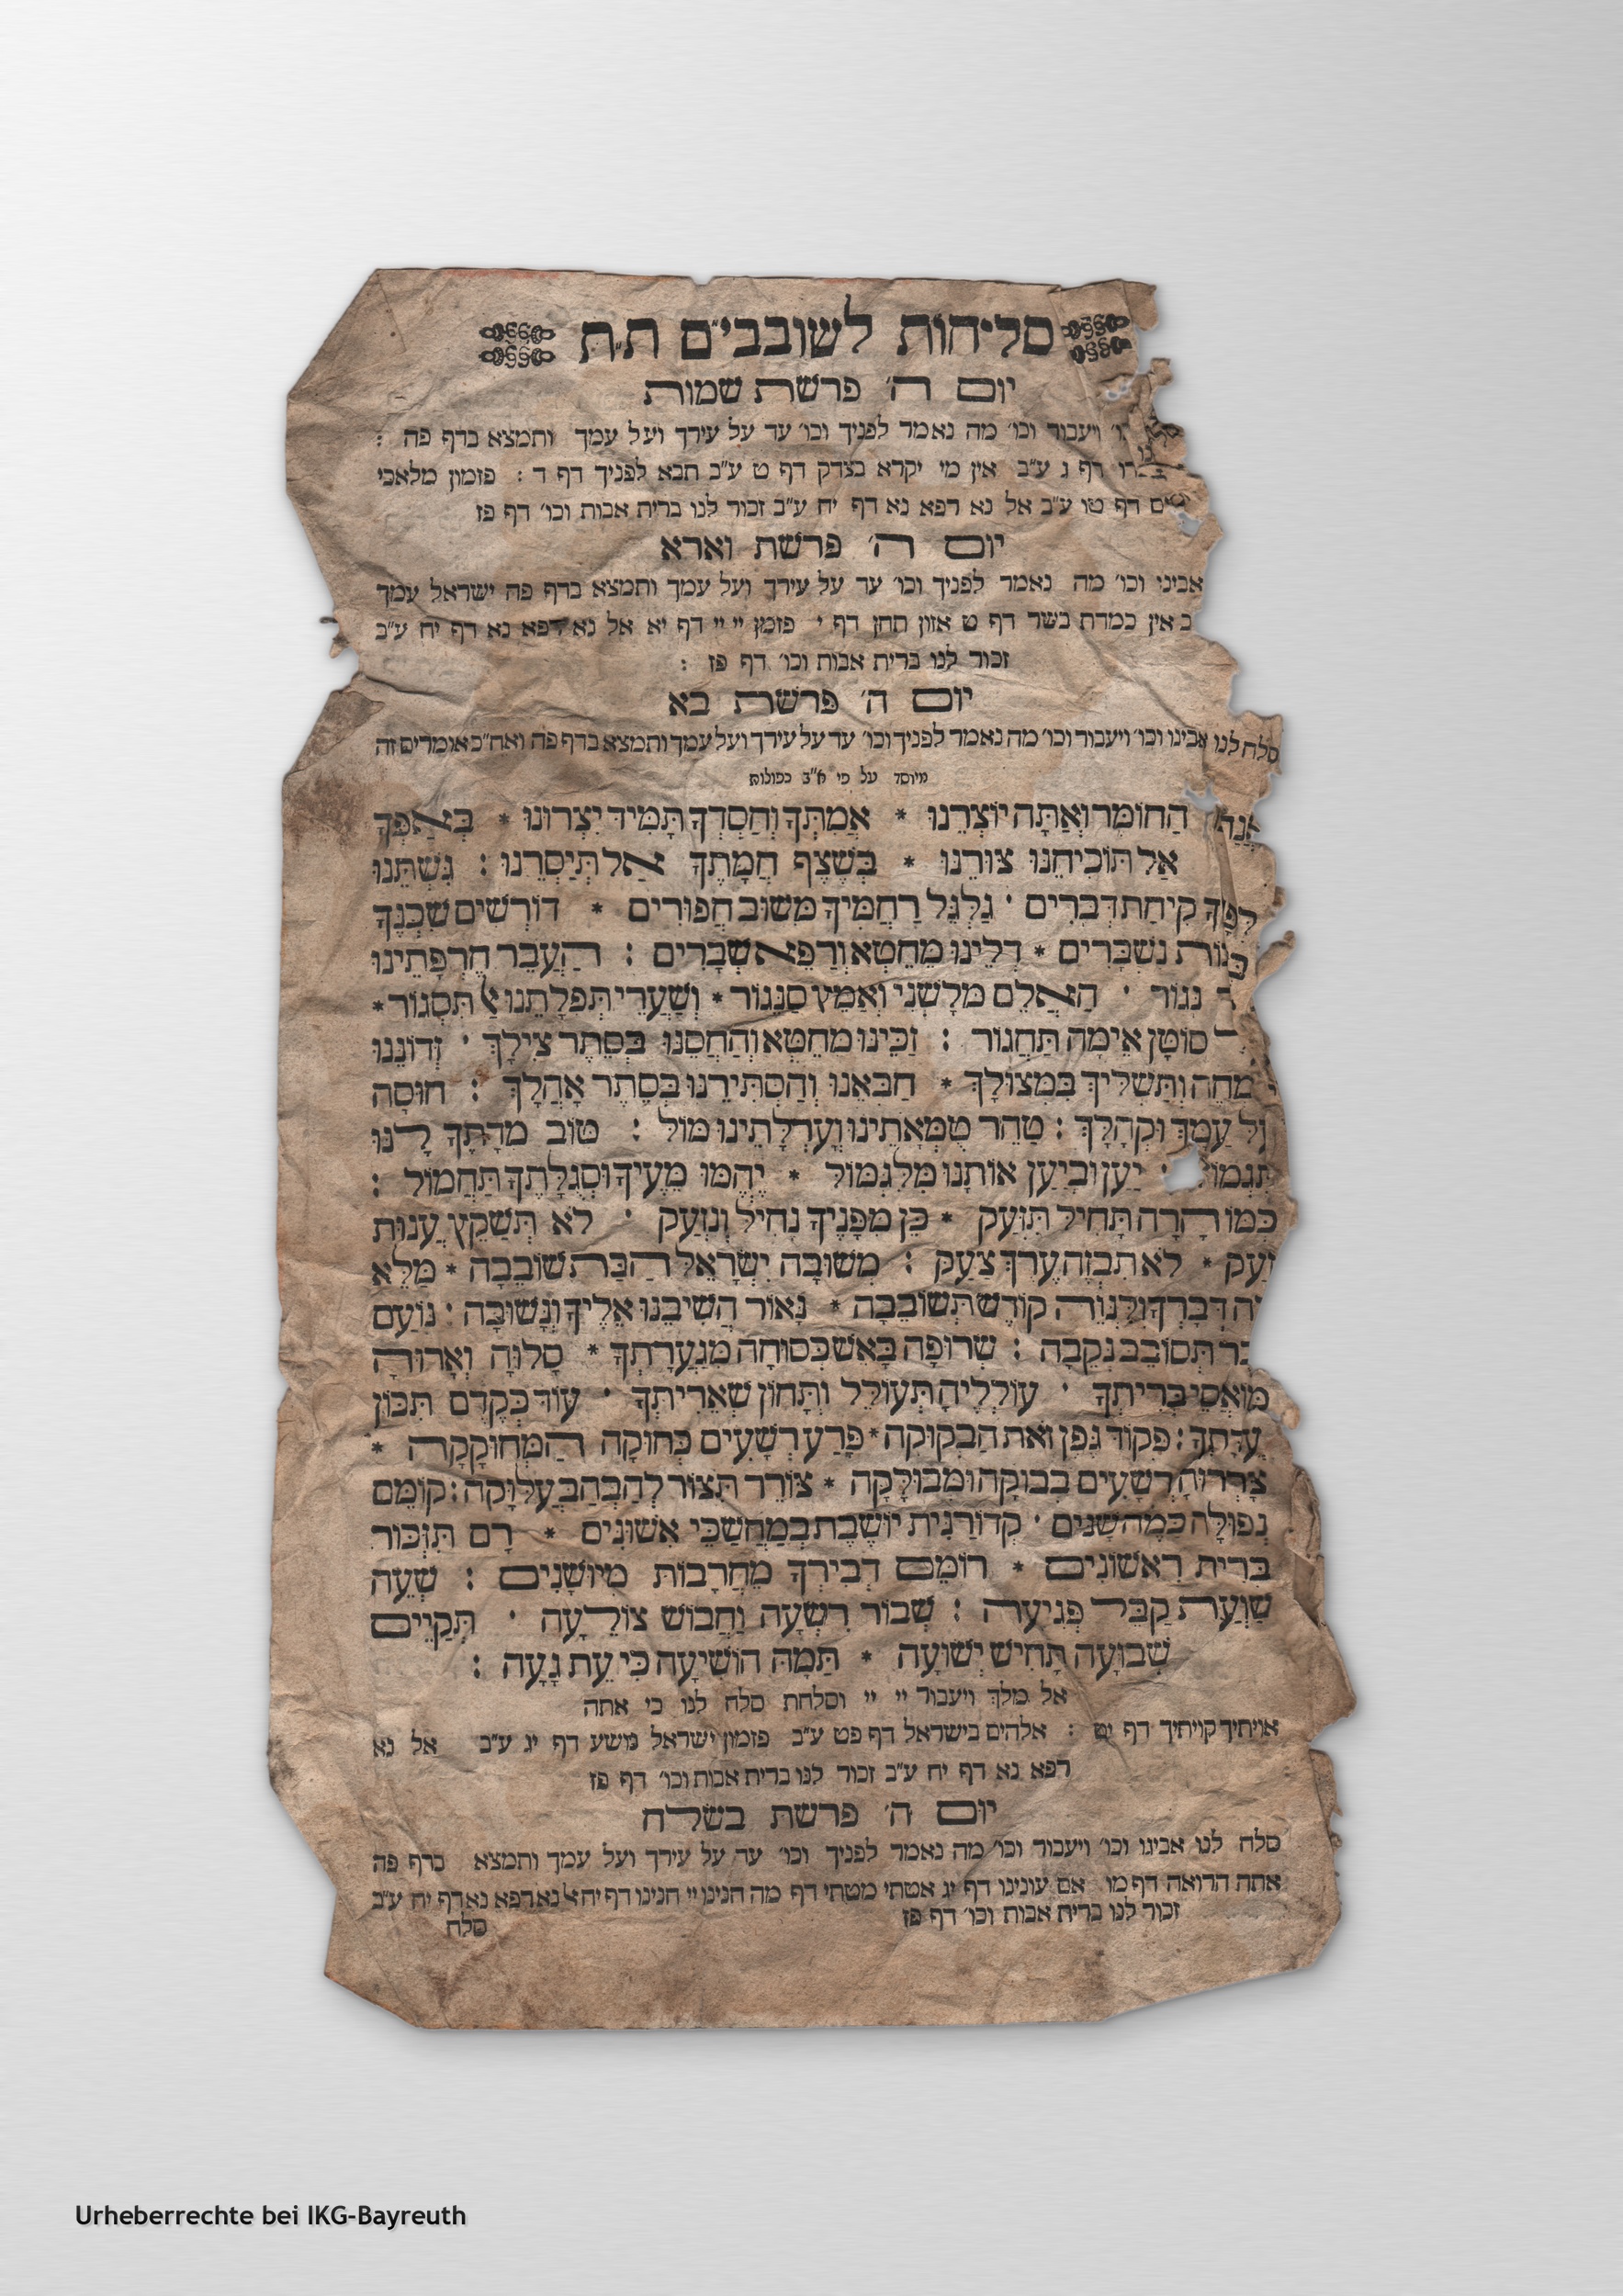 סליחות לשובבי״ם ת״ת
יום ה׳ פרשת שמות
ויעבור וכו׳ מה נאמר לפניך וכו׳ עד על עירך ועל עמך ותמצא בדף פה :
דף ג ע״ב אין מי יקרא בצדק דף ט ע״ב תבא לפניך דף ד : פזמון מלאכי
דף טו ע״ב אל נא רפא נא דף יח ע״ב זכור לנו ברית אבות וכו׳ דף פז
יום ה׳ פרשת וארא
אבינו וכו׳ מה נאמר לפניך וכו׳ עד על עירך ועל עמך ותמצא בדף פה ישראל עמך
אין כמדת בשר דף ט אזון תחן דף י פזמן יי יי דף יא אל נא רפא נא דף יח ע״ב
זכור לנו ברית אבות וכו׳ דף פז :
יום ה׳ פרשת בא
סלח לנו אבינו וכו׳ ויעבור וכו׳ מה נאמר לפניך וכו׳ עד על עירך ועל עמך ותמצא בדף פה ואח״כ אומרים זה
מיוסד על פי א״ב כפולות
הַחוֹמֶר וְאַתָּה יוֹצְרֵנוּ * אֲמִתְּךָ וְחַסְדְּךָ תָּמִיד יִצְרוּנוּ * בְּאַפְּךָ
אַל תּוֹכִיחֵנוּ צוּרֵנוּ * בְּשֶׁצֶף חֲמָתֶךָ אַל תְּיַסְּרֵנוּ : גִּשְׁתֵּנוּ
קִיחַת דְּבָרִים · גַּלְגֵּל רַחֲמֶיךָ מִשּׁוּב חֲפוּרִים * דּוֹרְשִׁים שִׁכְנְךָ
נִשְׁבָּרִים * דְלֵינוּ מֵחֵטְא וְרַפֵּא שְׁבָרִים : הַעֲבֵר חֶרְפָּתֵינוּ
נגוֹר · הַאֲלֵם מַלְשִׁנִי וְאַמֵּץ סַנֵּגוֹר * וְשַׁעֲרֵי תְּפִלָּתֵנוּ אַל תִּסְגּוֹר *
סוֹטָן אֵימָה תַּחֲגוֹר : זַכֵּינוּ מֵחֵטְא וְהַחֲסֵנוּ בְּסֵתֶר צִילָךְ · זְדוֹנֵנוּ
מְחֵה וְתַשְׁלִיךְ בִּמְצוּלָךְ * חַבְּאֵנוּ וְהַסְתִּירֵנוּ בְּסֵתֶר אָהֳלָךְ : חוּסָה
עַמְּךָ וּקְהָלָךְ : טַהֵר טֻמְאָתֵינוּ וְעָרְלָתֵינוּ מוֹל : טוֹב מִדָּתְךָ לָנוּ
תִגְמוֹל · יַעַן וּבְיַעַן אוֹתָנוּ מִלִּגְמוֹל * יֶהֱמוּ מֵעֶיךָ וּסְגֻלָּתְךָ תַּחֲמוֹל :
כְּמוֹ הָרָה תָּחִיל תִּזְעַק * כֵּן מִפָּנֶיךָ נָחִיל וְנִזְעַק · לֹא תְּשַׁקֵּץ עֱנוּת
זַעַק * לֹא תִבְזֶה עֶרֶךְ צַעַק : מְשׁוּבָה יִשְׂרָאֵל הַבַּת שׁוֹבֵבָה * מַלֵּא
דְבָרְךָ וְלִנְוֵה קוֹדֶשׁ תְּשׁוֹבְבָה * נָאוֹר הֲשִׁיבֵנוּ אֵלֶיךָ וְנָשׁוּבָה : נוֹעַם
תְּסוֹבֵב נְקֵבָה : שְׂרוּפָה בָּאֵשׁ כְּסוּחָה מִגַּעֲרָתְךָ * סָלוּהָ וְאָרוּהָ
מוֹאֲסֵי בְּרִיתֶךָ · עוֹלְלֶיהָ תְּעוֹלֵל וְתָחוֹן שְׁאֵרִיתֶךָ · עוֹד כְּקֶדֶם תִּכּוֹן
עֲדָתֶךָ : פְּקוֹד גֶּפֶן זֹאת הַבְּקוּקָה * פָּרַע רְשָׁעִים כְּחוּקָה הַמְּחוּקָקָה *
צָרְרוּהָ רְשָׁעִים בְּבוּקָה וּמְבוּלָּקָה * צוֹרֵר תָּצוּר לְהַבְהֵב עֲלוּקָה : קוֹמֵם
נְפוּלָה כַּמֶּה שָׁנִים · קְדוֹרַנִּית יוֹשֶׁבֶת בְּמַחֲשַׁכֵּי אִשּׁוּנִים * רָם תִּזְכּוֹר
בְּרִית רִאשׁוֹנִים * רוֹמֵם דְּבִירְךָ מֵחֳרָבוֹת מְיוּשָׁנִים : שְׁעֵה
שַׁוְעַת קַבֵּל פְּגִיעָה : שְׁבוֹר רִשְׁעָה וַחֲבוֹשׁ צוֹלֵעָה · תְּקַיֵּים
שְׁבוּעָה תָּחִישׁ יְשׁוּעָה * תַּמָּה הוֹשִׁיעָה כִּי עֵת גָּעָה :
אל מלך ויעבור יי יי וסלחת סלח לנו כי אתה
אויתיך קויתיך דף ים : אלהים בישראל דף פט ע״ב פזמון ישראל נושע דף יג ע״ב אל נא
רפא נא דף יח ע״ב זכור לנו ברית אבות וכו׳ דף פז
יום ה׳ פרשת בשלח
סלח לנו אבינו וכו׳ ויעבור וכו׳ מה נאמר לפניך וכו׳ עד על עירך ועל עמך ותמצא בדף פה
אתה הרואה דף מו אם עונינו דף יג אטתי מטתי דף מה חנינו יי חנינו דף יח אל נא רפא נא דף יח ע״ב
זכור לנו ברית אבות וכו׳ דף פז
סלח
Urheberrechte bei IKG-Bayreuth